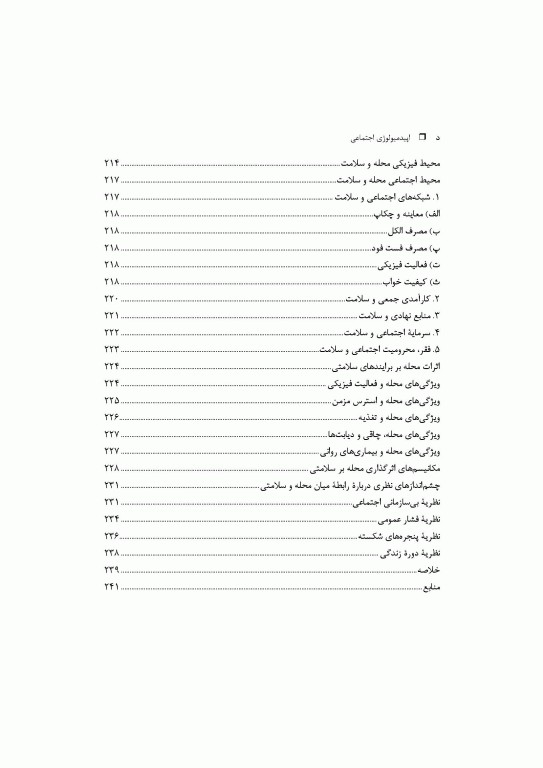 د ❒ اپیدمیولوژی اجتماعی
محیط فیزیکی محله و سلامت ۲۱۴
محیط اجتماعی محله و سلامت ۲۱۷
۱. شبکه‌های اجتماعی و سلامت ۲۱۷
الف) معاینه و چکاپ ۲۱۸
ب) مصرف الکل ۲۱۸
پ) مصرف فست فود ۲۱۸
ت) فعالیت فیزیکی ۲۱۸
ث) کیفیت خواب ۲۱۸
۲. کارآمدی جمعی و سلامت ۲۲۰
۳. منابع نهادی و سلامت ۲۲۱
۴. سرمایۀ اجتماعی و سلامت ۲۲۲
۵. فقر، محرومیت اجتماعی و سلامت ۲۲۳
اثرات محله بر برایندهای سلامتی ۲۲۴
ویژگی‌های محله و فعالیت فیزیکی ۲۲۴
ویژگی‌های محله و استرس مزمن ۲۲۵
ویژگی‌های محله و تغذیه ۲۲۶
ویژگی‌های محله، چاقی و دیابت‌ها ۲۲۷
ویژگی‌های محله و بیماری‌های روانی ۲۲۷
مکانیسم‌های اثرگذاری محله بر سلامتی ۲۲۸
چشم‌اندازهای نظری دربارۀ رابطۀ میان محله و سلامتی ۲۳۱
نظریۀ بی‌سازمانی اجتماعی ۲۳۱
نظریۀ فشار عمومی ۲۳۴
نظریۀ پنجره‌های شکسته ۲۳۶
نظریۀ دورۀ زندگی ۲۳۸
خلاصه ۲۳۹
منابع ۲۴۱